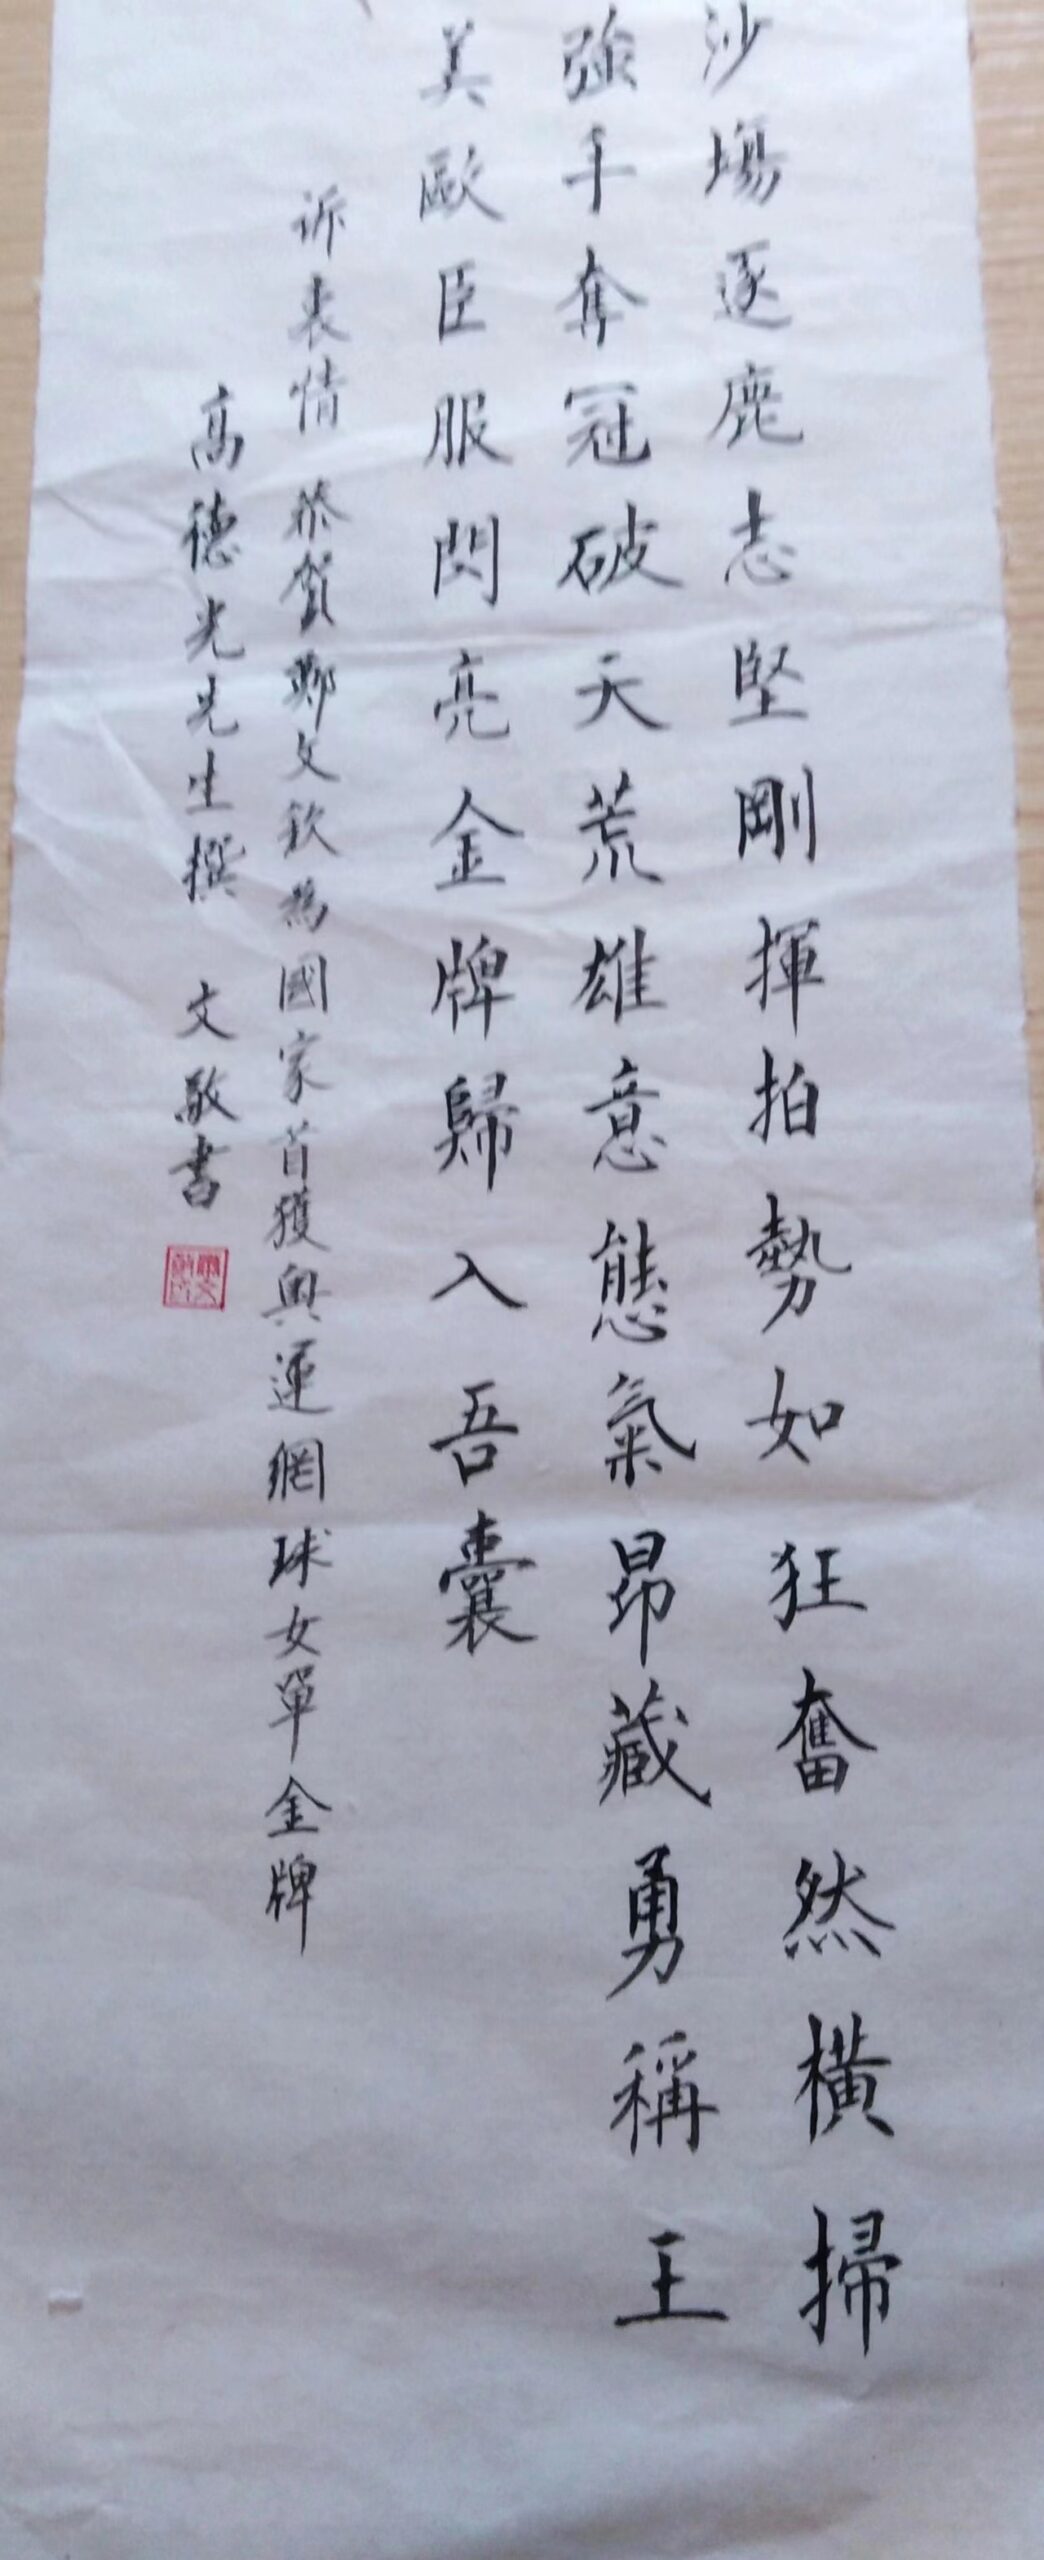 沙場逐鹿志堅剛揮拍勢如狂奮然橫掃
強手奪冠破天荒雄意態氣昂藏勇稱王
美歐臣服閃亮金牌歸入吾囊
訴衷情 恭賀鄭文欽為國家首獲奧運網球女單金牌
高德光先生撰 文敬書